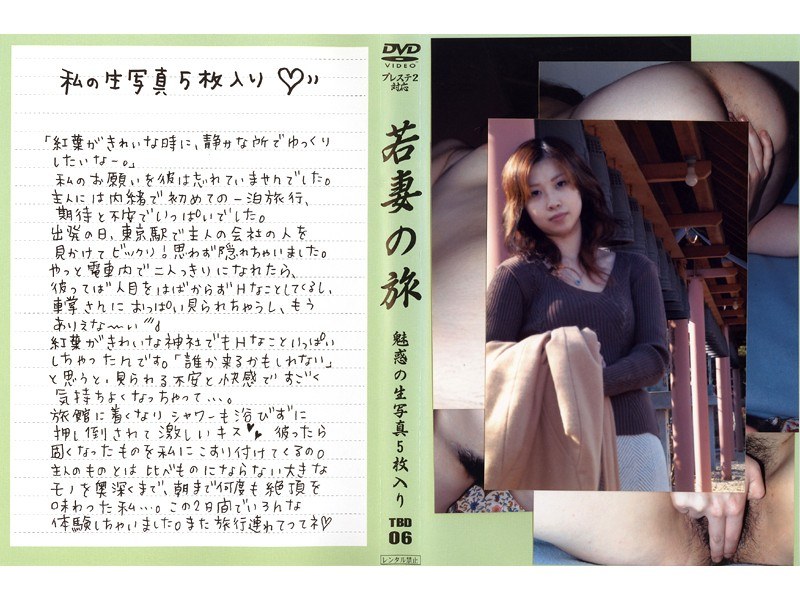 私の生写真5枚入り♡
「紅葉がきれいな時に、静かな所でゆっくり
したいなー。」
私のお願いを彼は忘れていませんでした。
主人には内緒で初めての一泊旅行、
期待と不安でいっぱいでした。
出発の日、東京駅で主人の会社の人を
見かけてビックリ!思わず隠れちゃいました。
やっと電車内で二人っきりになれたら、
彼ってば人目をはばからずHなことしてくるし、
車掌さんにおっぱい見られちゃうし、もう
ありえな〜い
紅葉がきれいな神社でもHなこといっぱい
しちゃったんです。「誰か来るかもしれない」
と思うと、見られる不安と快感ですごく
気持ちよくなっちゃって…。
旅館に着くなりシャワーも浴びずに
押し倒されて激しいキス♥♥ 彼ったら
固くなったものを私にこすり付けてくるの。
主人のものとは比べものにならない大きな
モノを奥深くまで、朝まで何度も絶頂を
味わった私…。この2日間でいろんな
体験しちゃいました。また旅行連れてってネ♡
DVD
VIDEO
プレステ2
対応
若妻の旅
魅惑の生写真5枚入り
TBD
06
レンタル禁止